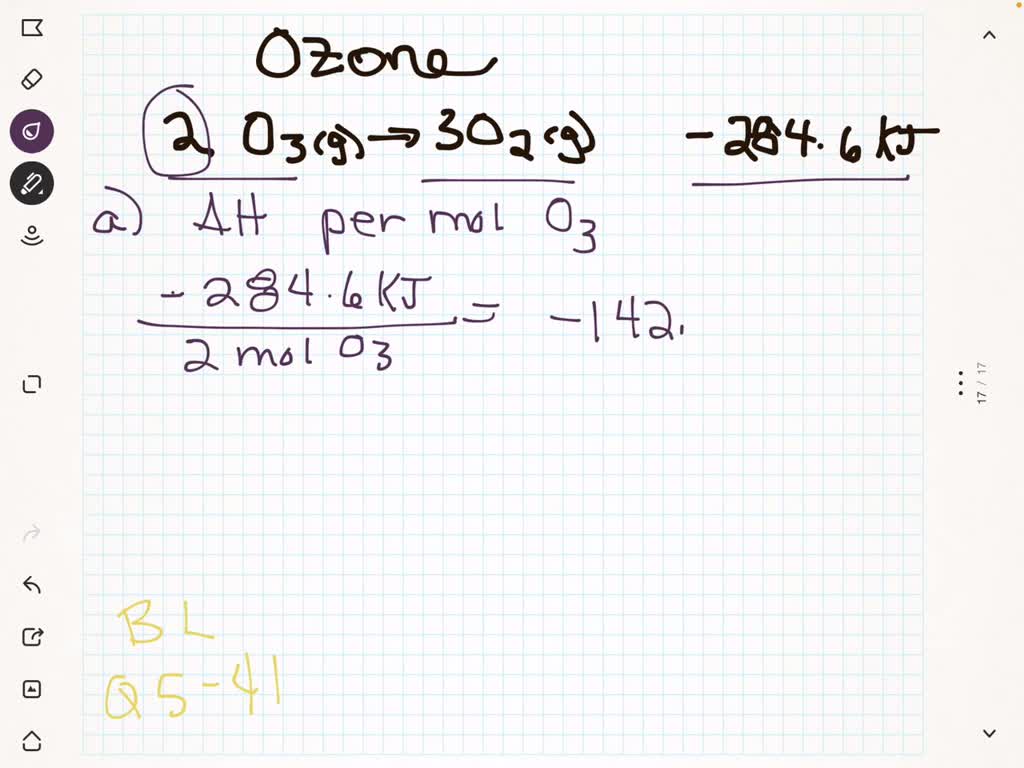 Ozone
2 O3(g) → 3O2(g) -284.6 KJ
a) ΔH per mol O3
-284.6 KJ
2 mol O3
= -142.
17 / 17
BL
Q5-41